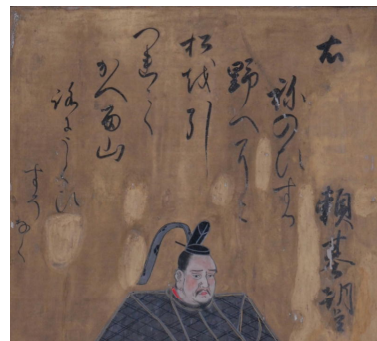 右
頼基朝臣
祢のひする
野へに小
松越引
つ連て
かへる山
路にうくひ
すそなく